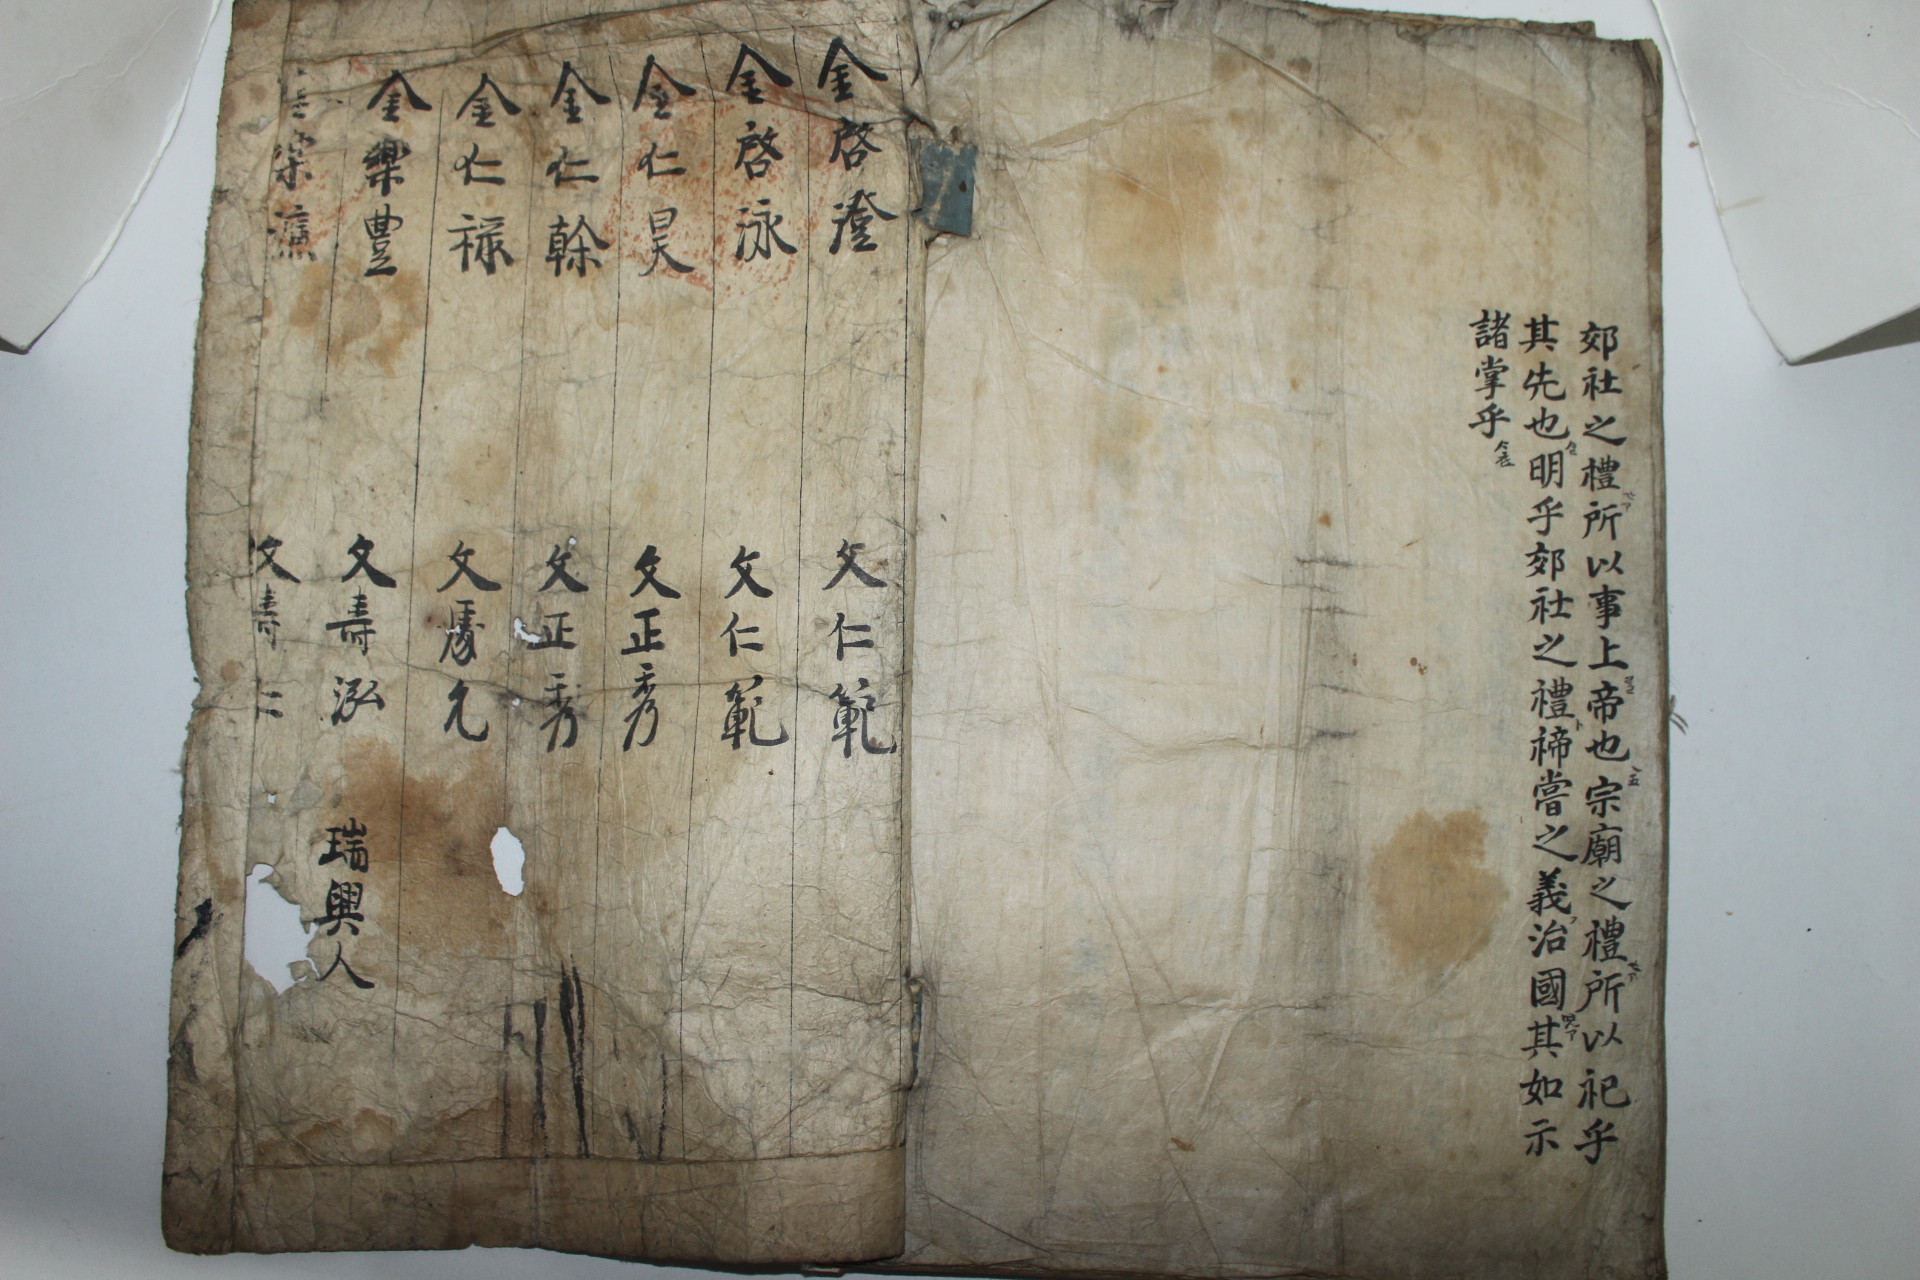 郊社之禮所以事上帝也宗廟之禮所以祀乎
其先也明乎郊社之禮禘嘗之義治國其如示
諸掌乎
金啓澄
金啓泳
金仁昊
金仁榦
金仁祿
金樂豊
文仁範
文仁範
文正秀
文正秀
文壽泓
瑞興人
文壽仁